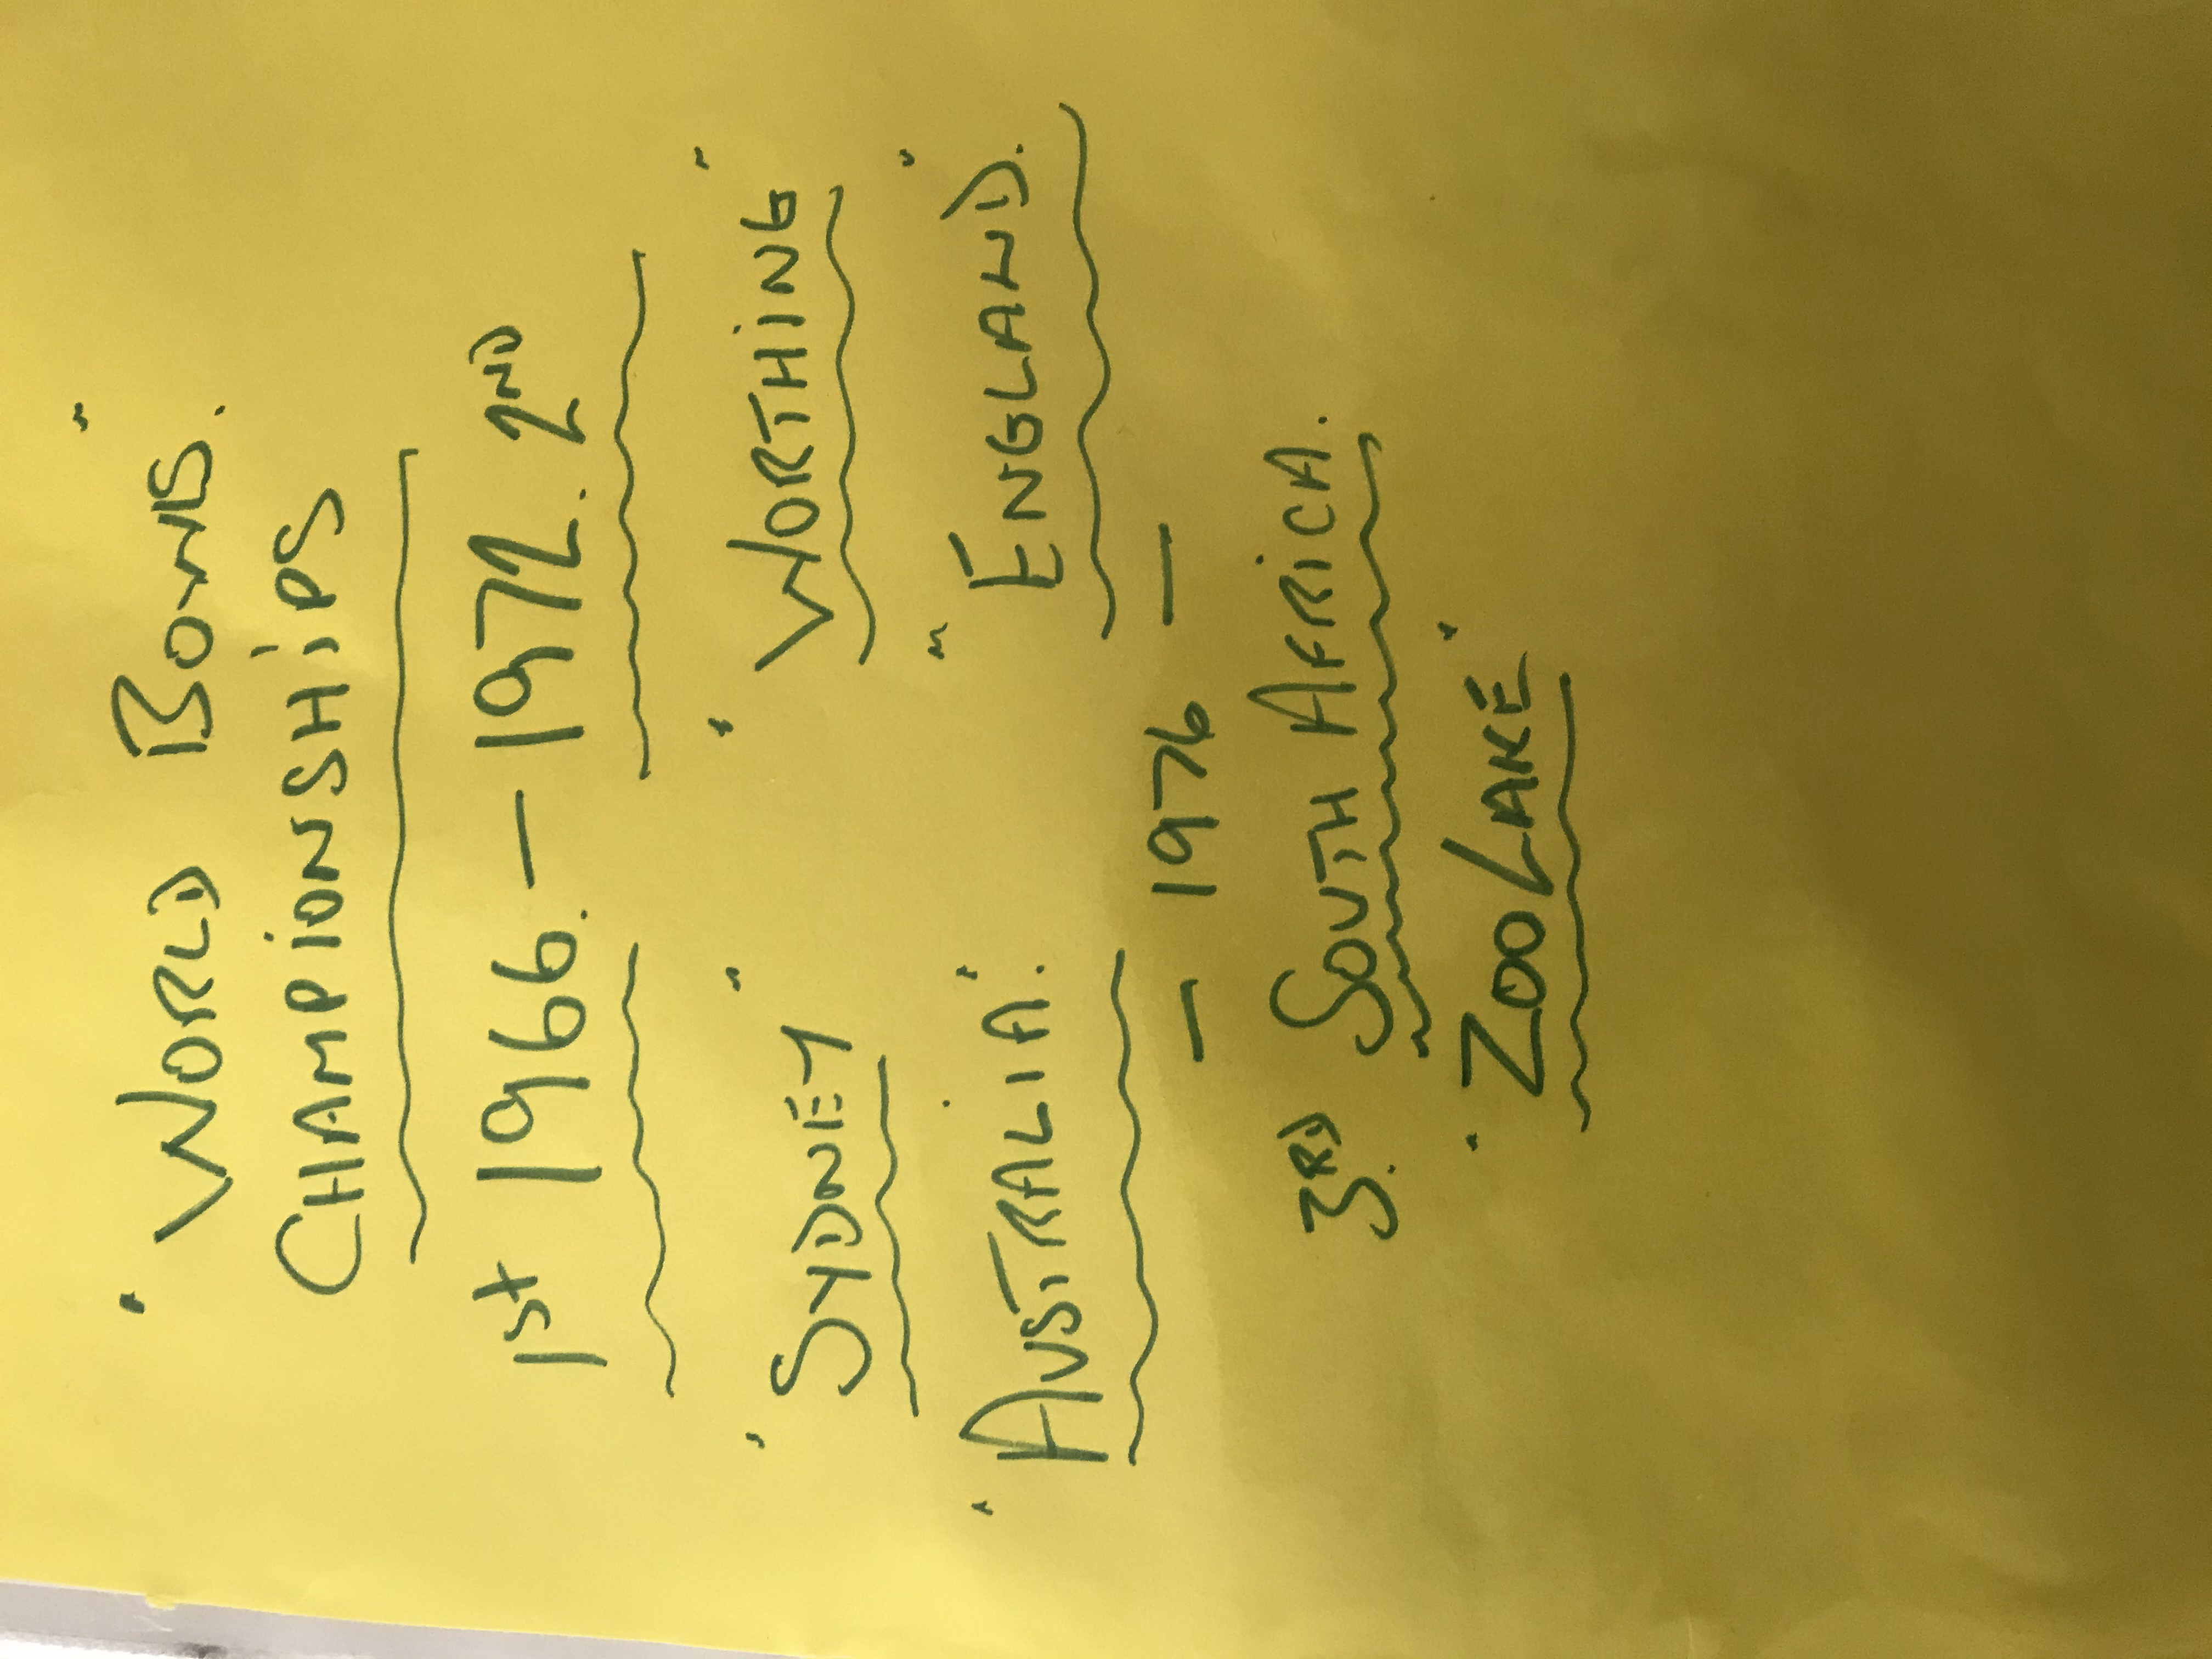 " WORLD BOWLS. "
CHAMPIONSHIPS
1st 1966. — 1972. 2ND
" SYDNEY " " WORTHING "
" AUSTRALIA. " " ENGLAND. "
— 1976 —
3RD. SOUTH AFRICA.
" ZOO LAKE "